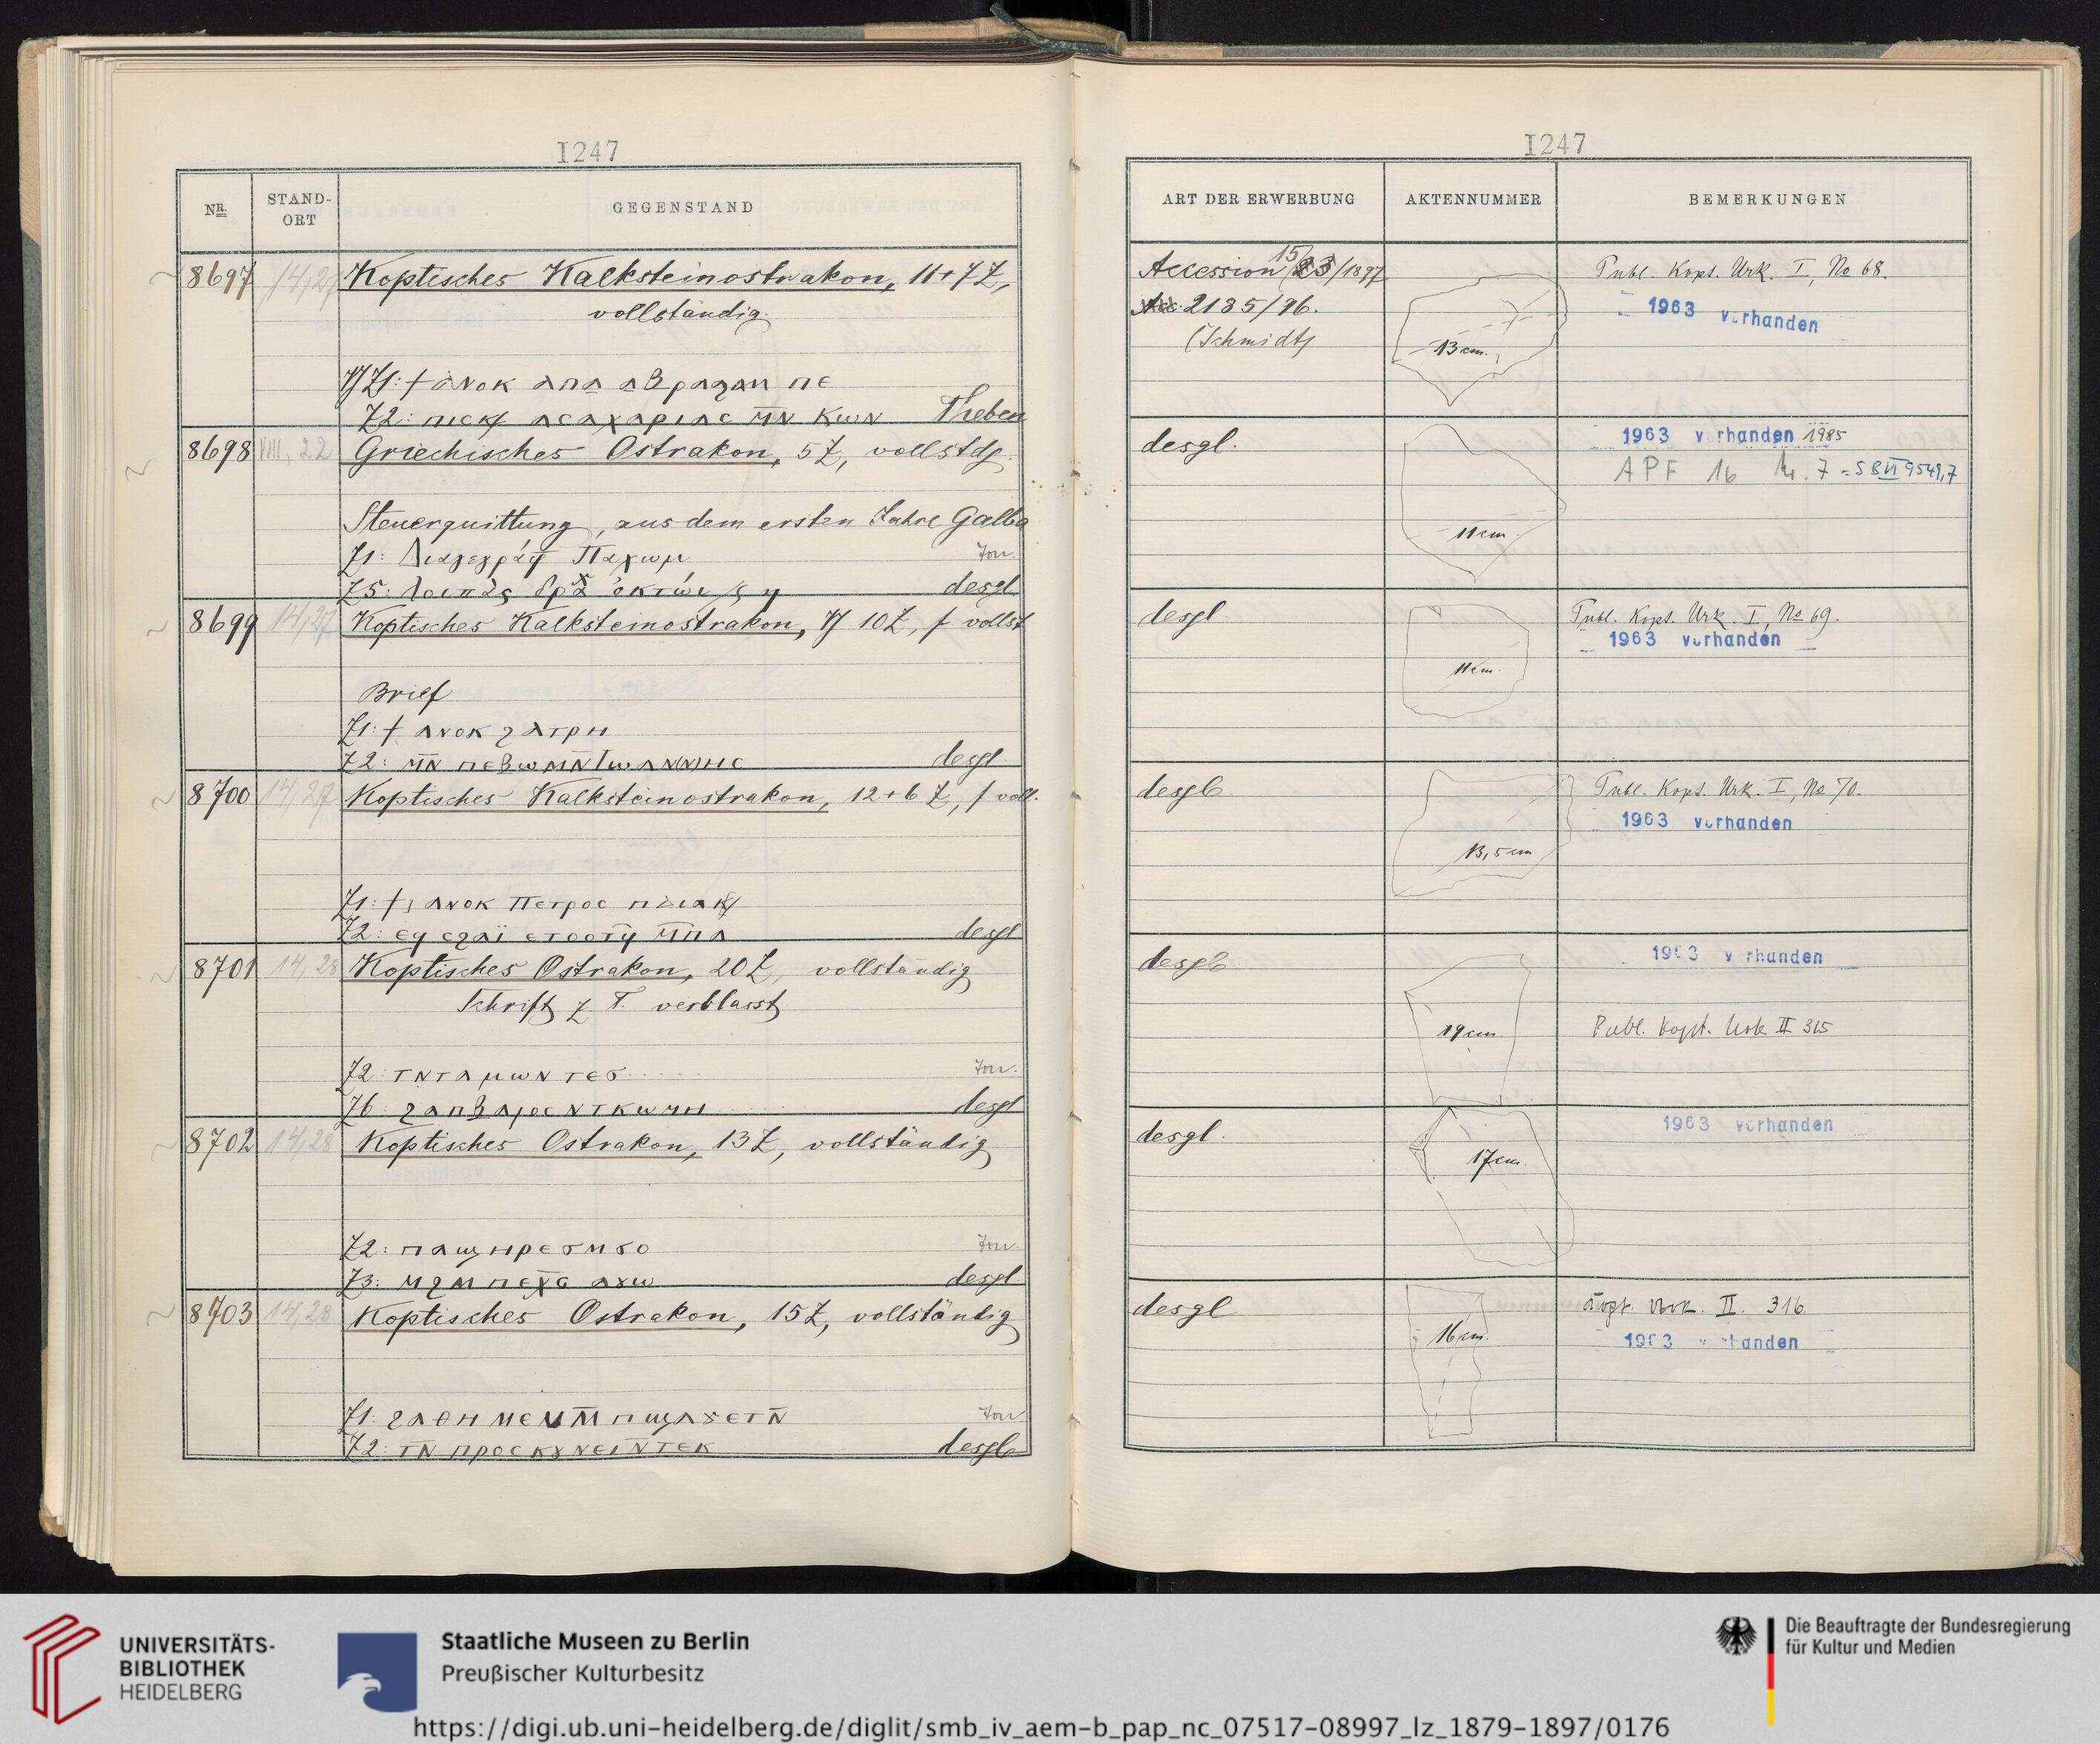 1247
NR.
STAND-ORT
GEGENSTAND
8697 14,27 Koptisches Kalksteinostrakon, 11+7 Z,
vollständig.
Z1: † ⲁⲛⲟⲕ ⲁⲡⲁ ⲁⲃⲣⲁϩⲁⲙ ⲡⲉ
Theben
8698 VIII, 22 Griechisches Ostrakon, 5 Z, vollstdg.
Steuerquittung, aus dem ersten Jahre Galba
Z1: Παχωμ
Ton.
Z5: ὀκτώι
desgl
8699 14,27 Koptisches Kalksteinostrakon, 10 Z, f vollst
Brief
Z1: † ⲁⲛⲟⲕ ϩⲁⲧⲣⲏ
desgl.
8700 14,27 Koptisches Kalksteinostrakon, 12+6 Z, f voll.
Z1: ⲁⲛⲟⲕ ⲡⲉⲧⲣⲟⲥ
desgl
8701 14,28 Koptisches Ostrakon, 20 Z, vollständig
Schrift z. T. verblasst
Z2: ⲧⲛⲧⲁⲙⲱⲛ ⲧⲉϭ
Ton.
Z6:
desgl
8702 14,28 Koptisches Ostrakon, 13 Z, vollständig
Z2: ⲡⲁϣⲏⲣⲉ
Ton.
Z3:
desgl.
8703 14,28 Koptisches Ostrakon, 15 Z, vollständig
Z1: ϩⲁⲑⲏ ⲙⲉⲛ ⲙ̄ⲡϣⲁϫⲉ ⲧⲛ̄
Ton
Z2: ⲧⲛ̄ ⲡⲣⲟⲥⲕⲩⲛⲉⲓ ⲛ̄ⲧⲉⲕ
desgl.
1247
ART DER ERWERBUNG
AKTENNUMMER
BEMERKUNGEN
Accession 15/1897
2185/96.
(Schmidt)
13 cm.
Publ. Kopt. Urk. I, No 68.
1963 vorhanden
desgl.
11 cm.
1963 vorhanden 1985
APF 16 Nr. 7 = SB VI 9541,7
desgl
11 cm.
Publ. Kopt. Urk. I, No 69.
1963 vorhanden
desgl
13,5 cm
Publ. Kopt. Urk. I, No 70.
1963 vorhanden
desgl
19 cm
1963 vorhanden
Publ. Kopt. Urk II 315
desgl.
17 cm.
1963 vorhanden
desgl
16 cm.
Urk. II. 316
1963 vorhanden
UNIVERSITÄTS-
BIBLIOTHEK
HEIDELBERG
Staatliche Museen zu Berlin
Preußischer Kulturbesitz
Die Beauftragte der Bundesregierung
für Kultur und Medien
https://digi.ub.uni-heidelberg.de/diglit/smb_iv_aem-b_pap_nc_07517-08997_lz_1879-1897/0176